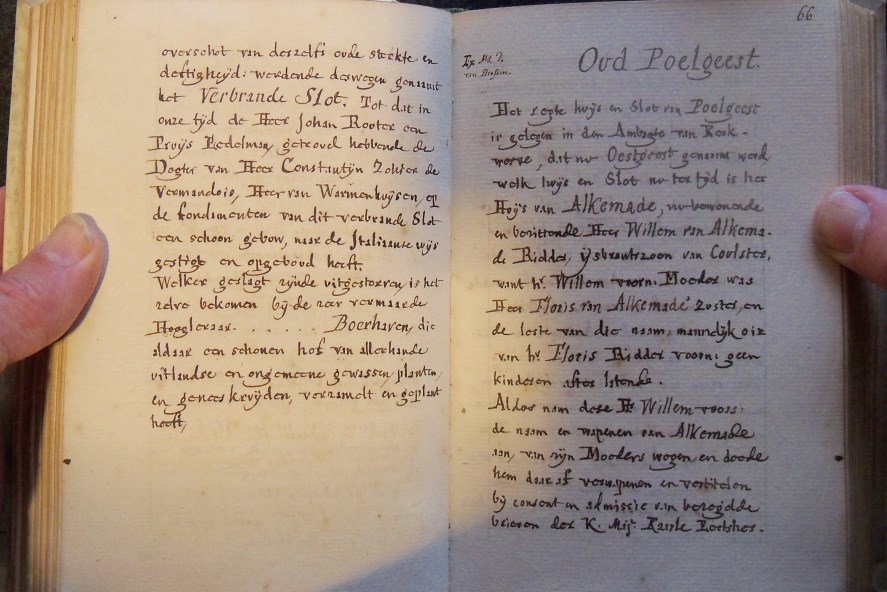 overschot van deszelfs oude sterkte en
deftigheyd: werdende deswegen genaamt
het Verbrande Slot. Tot dat in
onze tyd de Heer Johan Rooter een
Pruys Eedelman, getrout hebbende de
Dogter van Heer Constantyn Sohier de
Vermandois, Heer van Warmenhuysen, op
de fondamenten van dit verbrande Slot
een schoon gebow, naar de Italiaanse wys
gestigt en opgebout heeft.
Welker geslagt zynde uitgestorven is het
zelve bekomen by de zeer vermaarde
Hoogleraar . . . . . . Boerhaven, die
aldaar een schonen hof van allerhande
uitlandse en ongemeene gewassen, planten,
en genees kruyden, verzamelt en geplant
heeft,
66
Ex Ms. J.
van Hinsen.
Oud Poelgeest.
Het regte huys en Slot van Poelgeest
is gelegen in den Ambagte van Kerk-
werve, dat nu Oestgeest genaamt werd
welk huys en Slot nu ter tyd is het
Huys van Alkemade, nu bewonende
en bezittende Heer Willem van Alkema-
de Ridder, ysbrantszoon van Coulster,
want hr. Willem voorn. Moeder was
Heer Floris van Alkemade Zuster, en
de leste van die naam, mannelyk oir
van hr. Floris Ridder voorn: geen
kinderen after latende.
Aldus nam dese Hr. Willem voors:
de naam en wapenen van Alkemade
aan, van zyn Moeders wegen, en deede
hem daar af verwapenen en vertitelen
by consent en admissie van bezegelde
brieven der K. Mijt. Karle